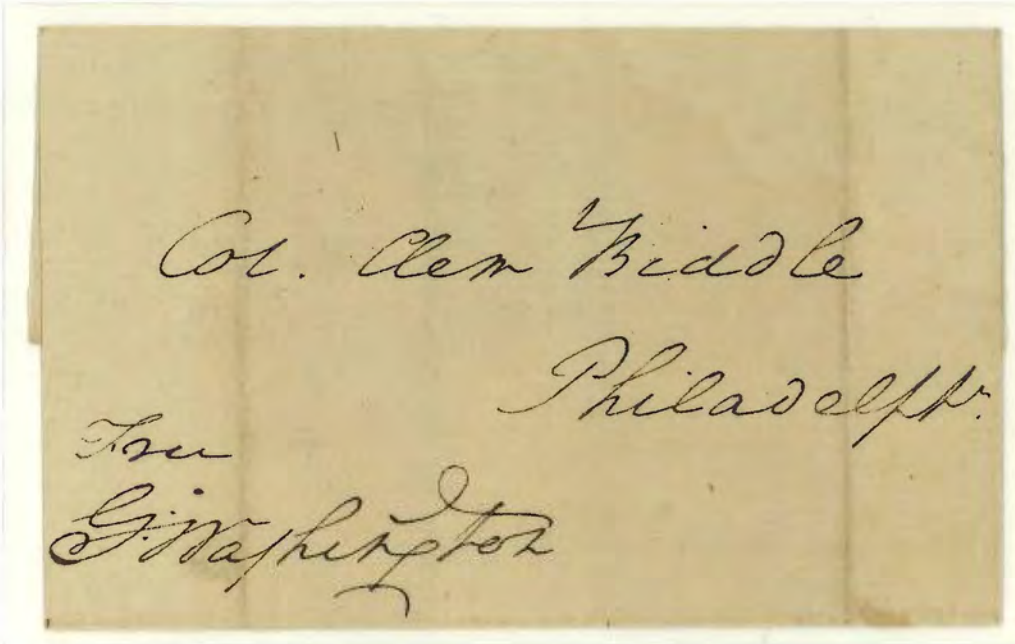 Col. Clem Biddle
Philadelpha.
Free
G:Washington